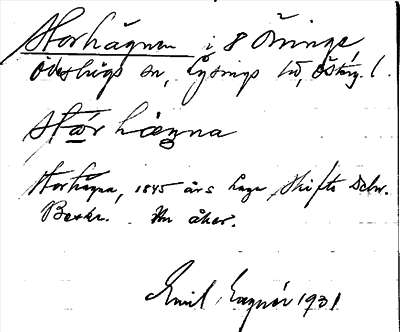 Storhägnen i 8 Öninge,
Ödeshögs sn, Lysings hd, Österg. l.
stórhægna
Storhägna, 1845 års Laga Skifte Deln.
Beskr. Nu åker.
Emil Lagnér 1931